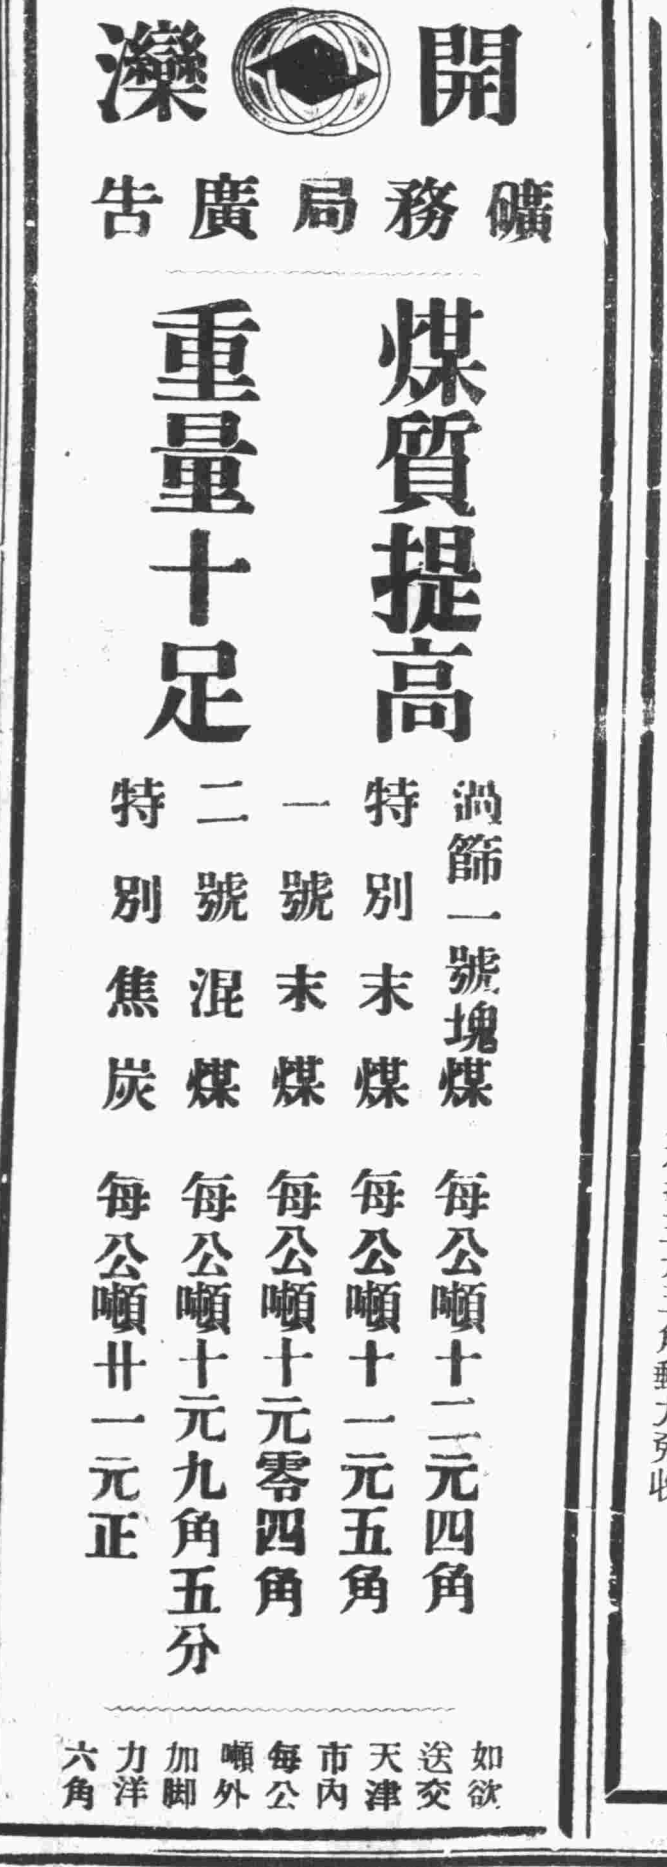 開灤
礦務局廣告
煤質提高
重量十足
渦篩一號塊煤 每公噸十二元四角
特別末煤 每公噸十一元五角
一號末煤 每公噸十元零四角
二號混煤 每公噸十元九角五分
特別焦炭 每公噸廿一元正
如欲送交天津市內每公噸外加脚力洋六角